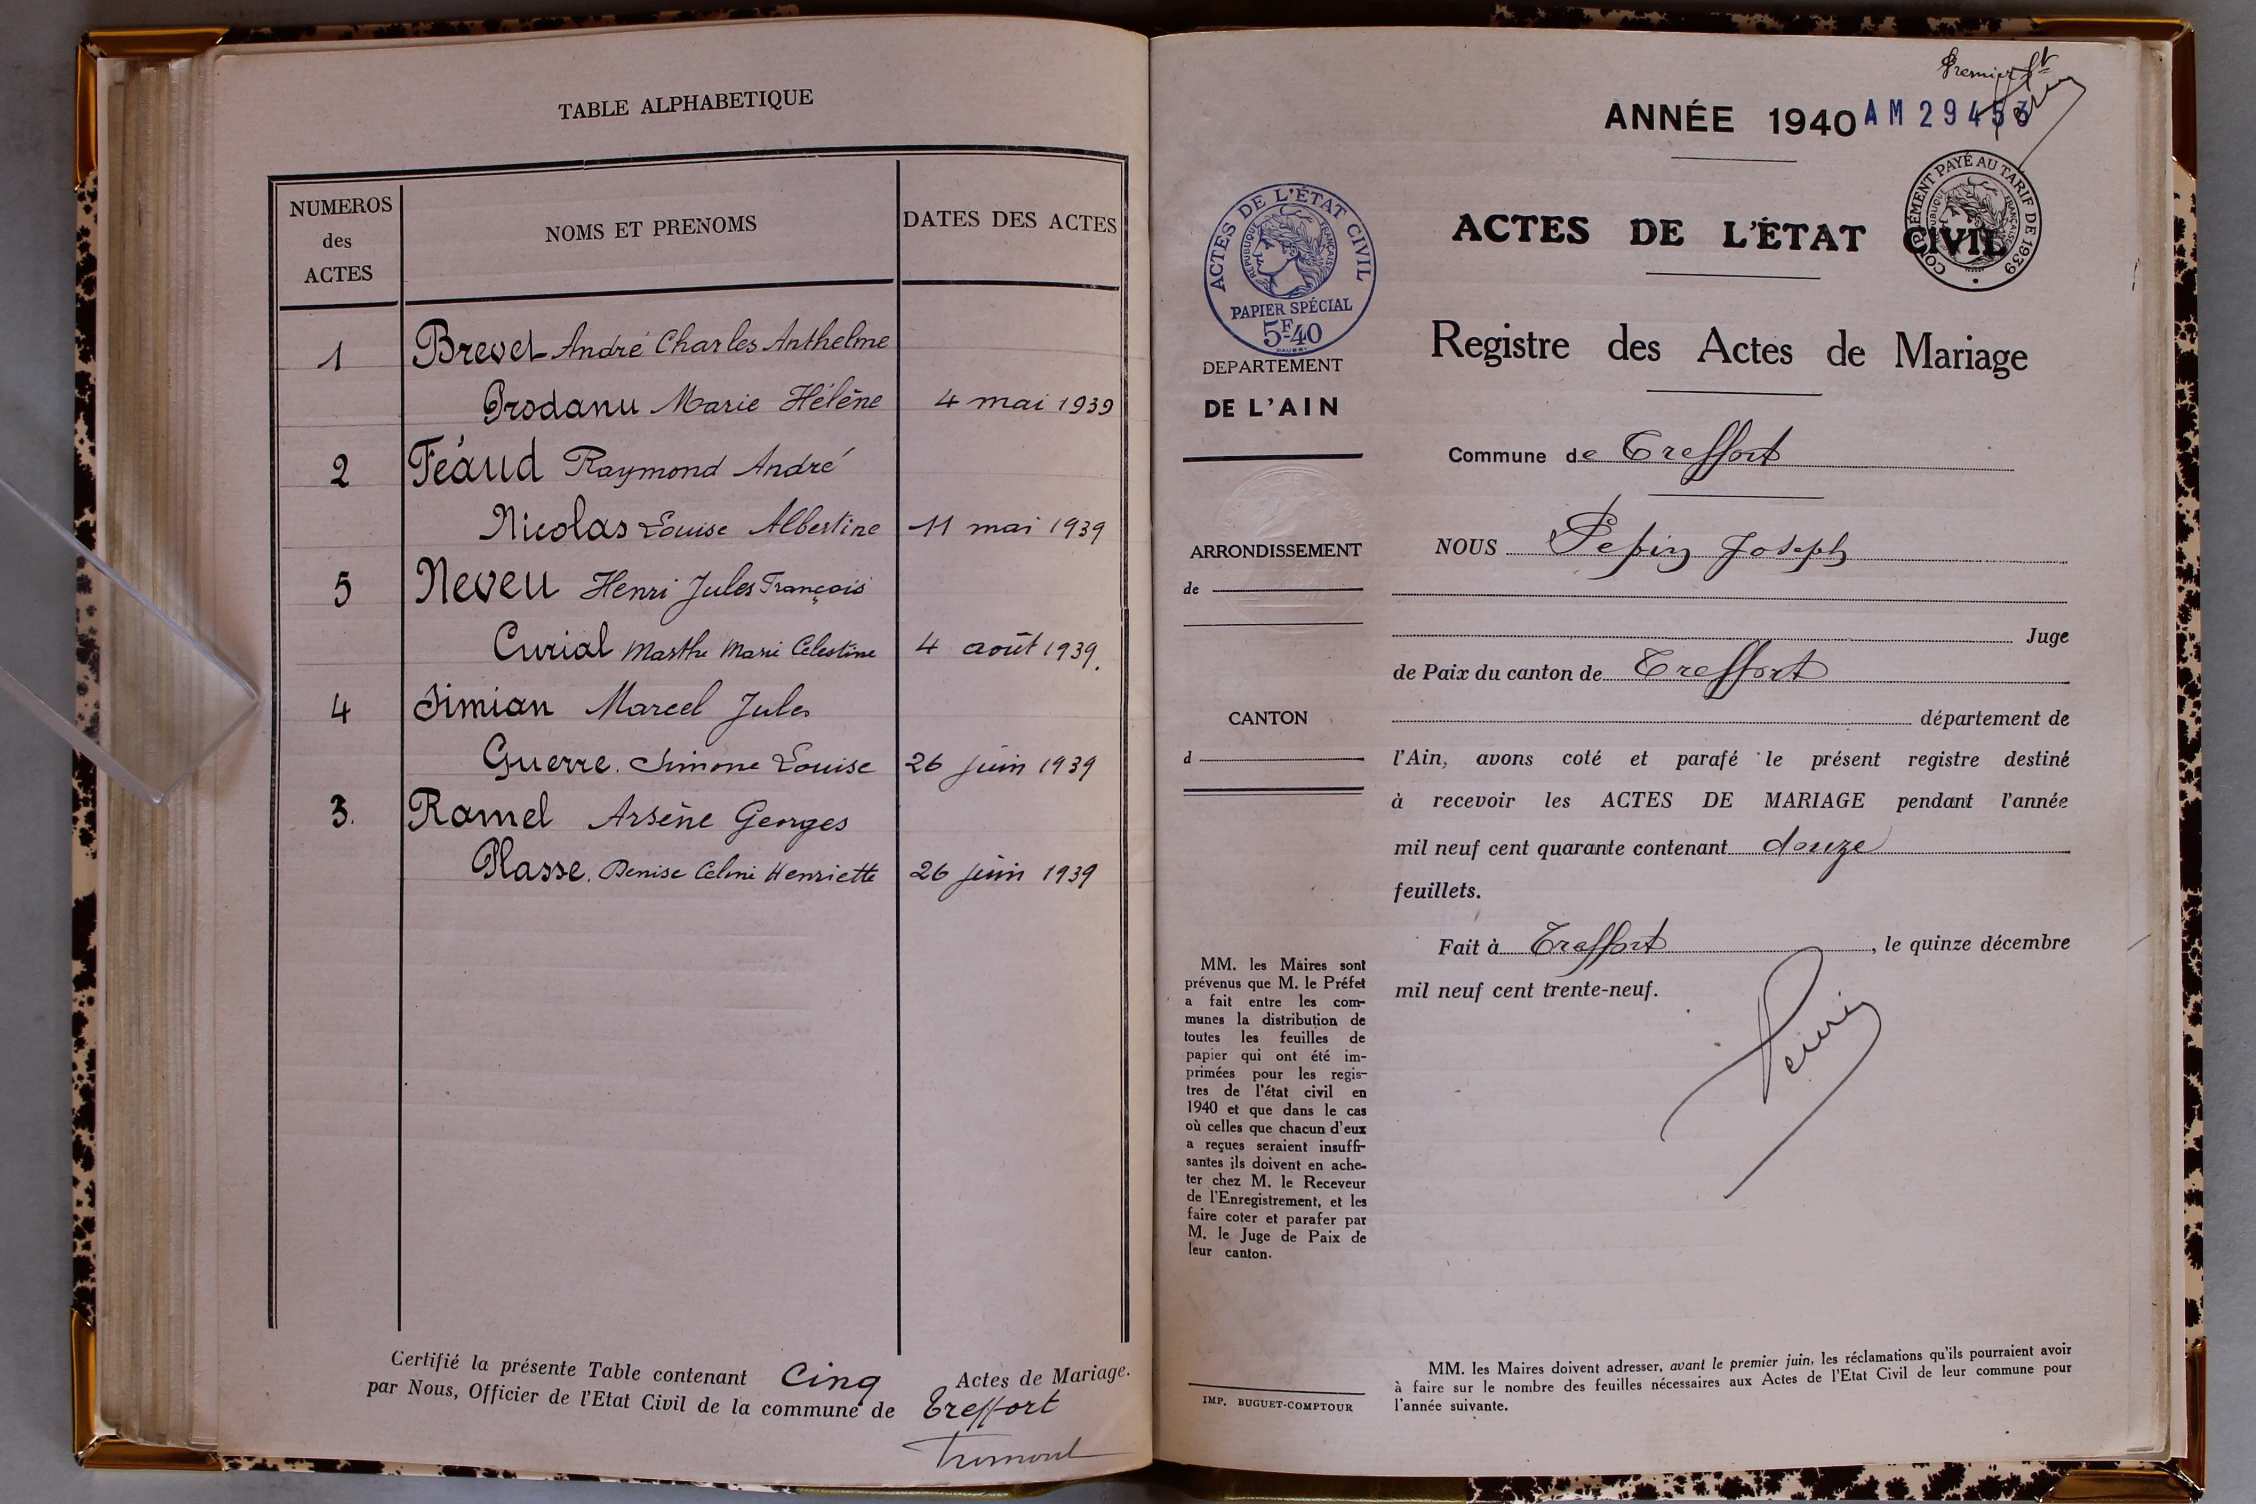 TABLE ALPHABETIQUE
NUMEROS
des
ACTES
NOMS ET PRENOMS
DATES DES ACTES
1 Brevet André Charles Anthelme
Prodanu Marie Hélène 4 mai 1939
2 Féaud Raymond André
Nicolas Louise Albertine 11 mai 1939
5 Neveu Henri Jules François
Curial Marthe Marie Célestine 4 août 1939.
4 Simian Marcel Jules
Guerre. Simone Louise 26 juin 1939
3. Ramel Arsène Georges
Plasse. Denise Celine Henriette 26 juin 1939
Certifié la présente Table contenant Cinq Actes de Mariage.
par Nous, Officier de l'Etat Civil de la commune de Treffort
Premier
ANNÉE 1940 AM 29453
COMPLÉMENT PAYÉ AU TARIF DE 1939
RÉPUBLIQUE FRANÇAISE
ACTES DE L'ÉTAT CIVIL
RÉPUBLIQUE FRANÇAISE
PAPIER SPÉCIAL
5F40
DEPARTEMENT
DE L'AIN
ARRONDISSEMENT
de
CANTON
d
MM. les Maires sont
prévenus que M. le Préfet
a fait entre les com-
munes la distribution de
toutes les feuilles de
papier qui ont été im-
primées pour les regis-
tres de l'état civil en
1940 et que dans le cas
où celles que chacun d'eux
a reçues seraient insuffi-
santes ils doivent en ache-
ter chez M. le Receveur
de l'Enregistrement, et les
faire coter et parafer par
M. le Juge de Paix de
leur canton.
IMP. BUGUET-COMPTOUR
ACTES DE L'ÉTAT CIVIL
Registre des Actes de Mariage
Commune de Treffort
NOUS Pépin Joseph
Juge
de Paix du canton de Treffort
département de
l'Ain, avons coté et parafé le présent registre destiné
à recevoir les ACTES DE MARIAGE pendant l'année
mil neuf cent quarante contenant douze
feuillets.
Fait à Treffort, le quinze décembre
mil neuf cent trente-neuf.
MM. les Maires doivent adresser, avant le premier juin, les réclamations qu'ils pourraient avoir
à faire sur le nombre des feuilles nécessaires aux Actes de l'Etat Civil de leur commune pour
l'année suivante.